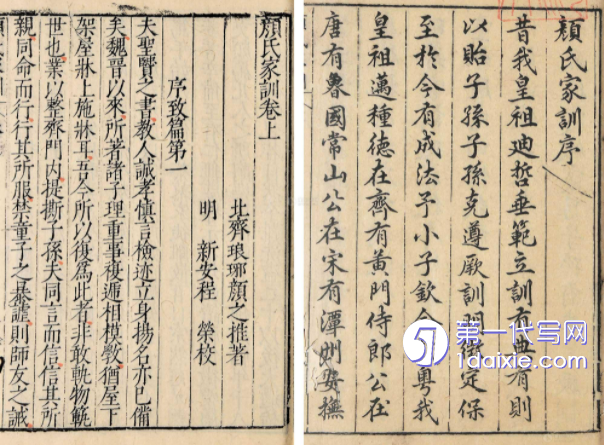 顏氏家訓序
昔我皇祖迪哲垂範立訓有典有則
以貽子孫子孫克遵厥訓徵定保
至於今有成法予小子欽粤我
皇祖邁種德在齊有黃門侍郎公在
唐有魯國常山公在宋有潭州安撫
顏氏家訓卷上
北齊琅琊顏之推著
明 新安程 榮校
序致篇第一
夫聖賢之書教人誠孝慎言檢迹立身揚名亦已備
矣魏晉以來所著諸子理重事複遞相模斆猶屋下
架屋牀上施牀耳吾今所以復為此者非敢軌物範
世也業以整齊門內提撕子孫夫同言而信信其所
親同命而行行其所服禁童子之暴謔則師友之誡
第一代写网
1daixie.com